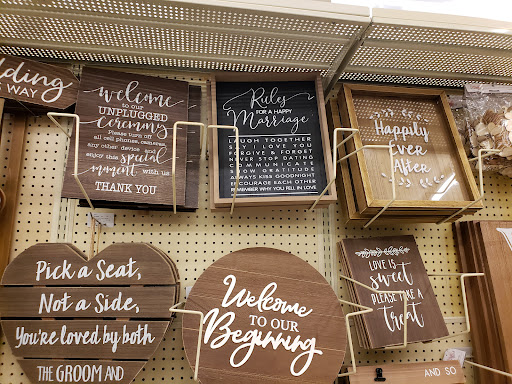 dding
S WAY
welcome
to our
UNPLUGGED
ceremony
Please turn off
all cell phones, cameras,
any other device and
enjoy this special
moment with us
THANK YOU
Rules
FOR A HAPPY
Marriage
LAUGH TOGETHER
SAY I LOVE YOU
FORGIVE & FORGET
NEVER STOP DATING
COMMUNICATE
SHOW GRATITUDE
ALWAYS KISS GOODNIGHT
ENCOURAGE EACH OTHER
REMEMBER WHY YOU FELL IN LOVE
Happily
Ever
After
Pick a Seat,
Not a Side,
You're loved by both
THE GROOM AND
Welcome
TO OUR
Beginning
LOVE IS
sweet
PLEASE TAKE A
treat
AND SO